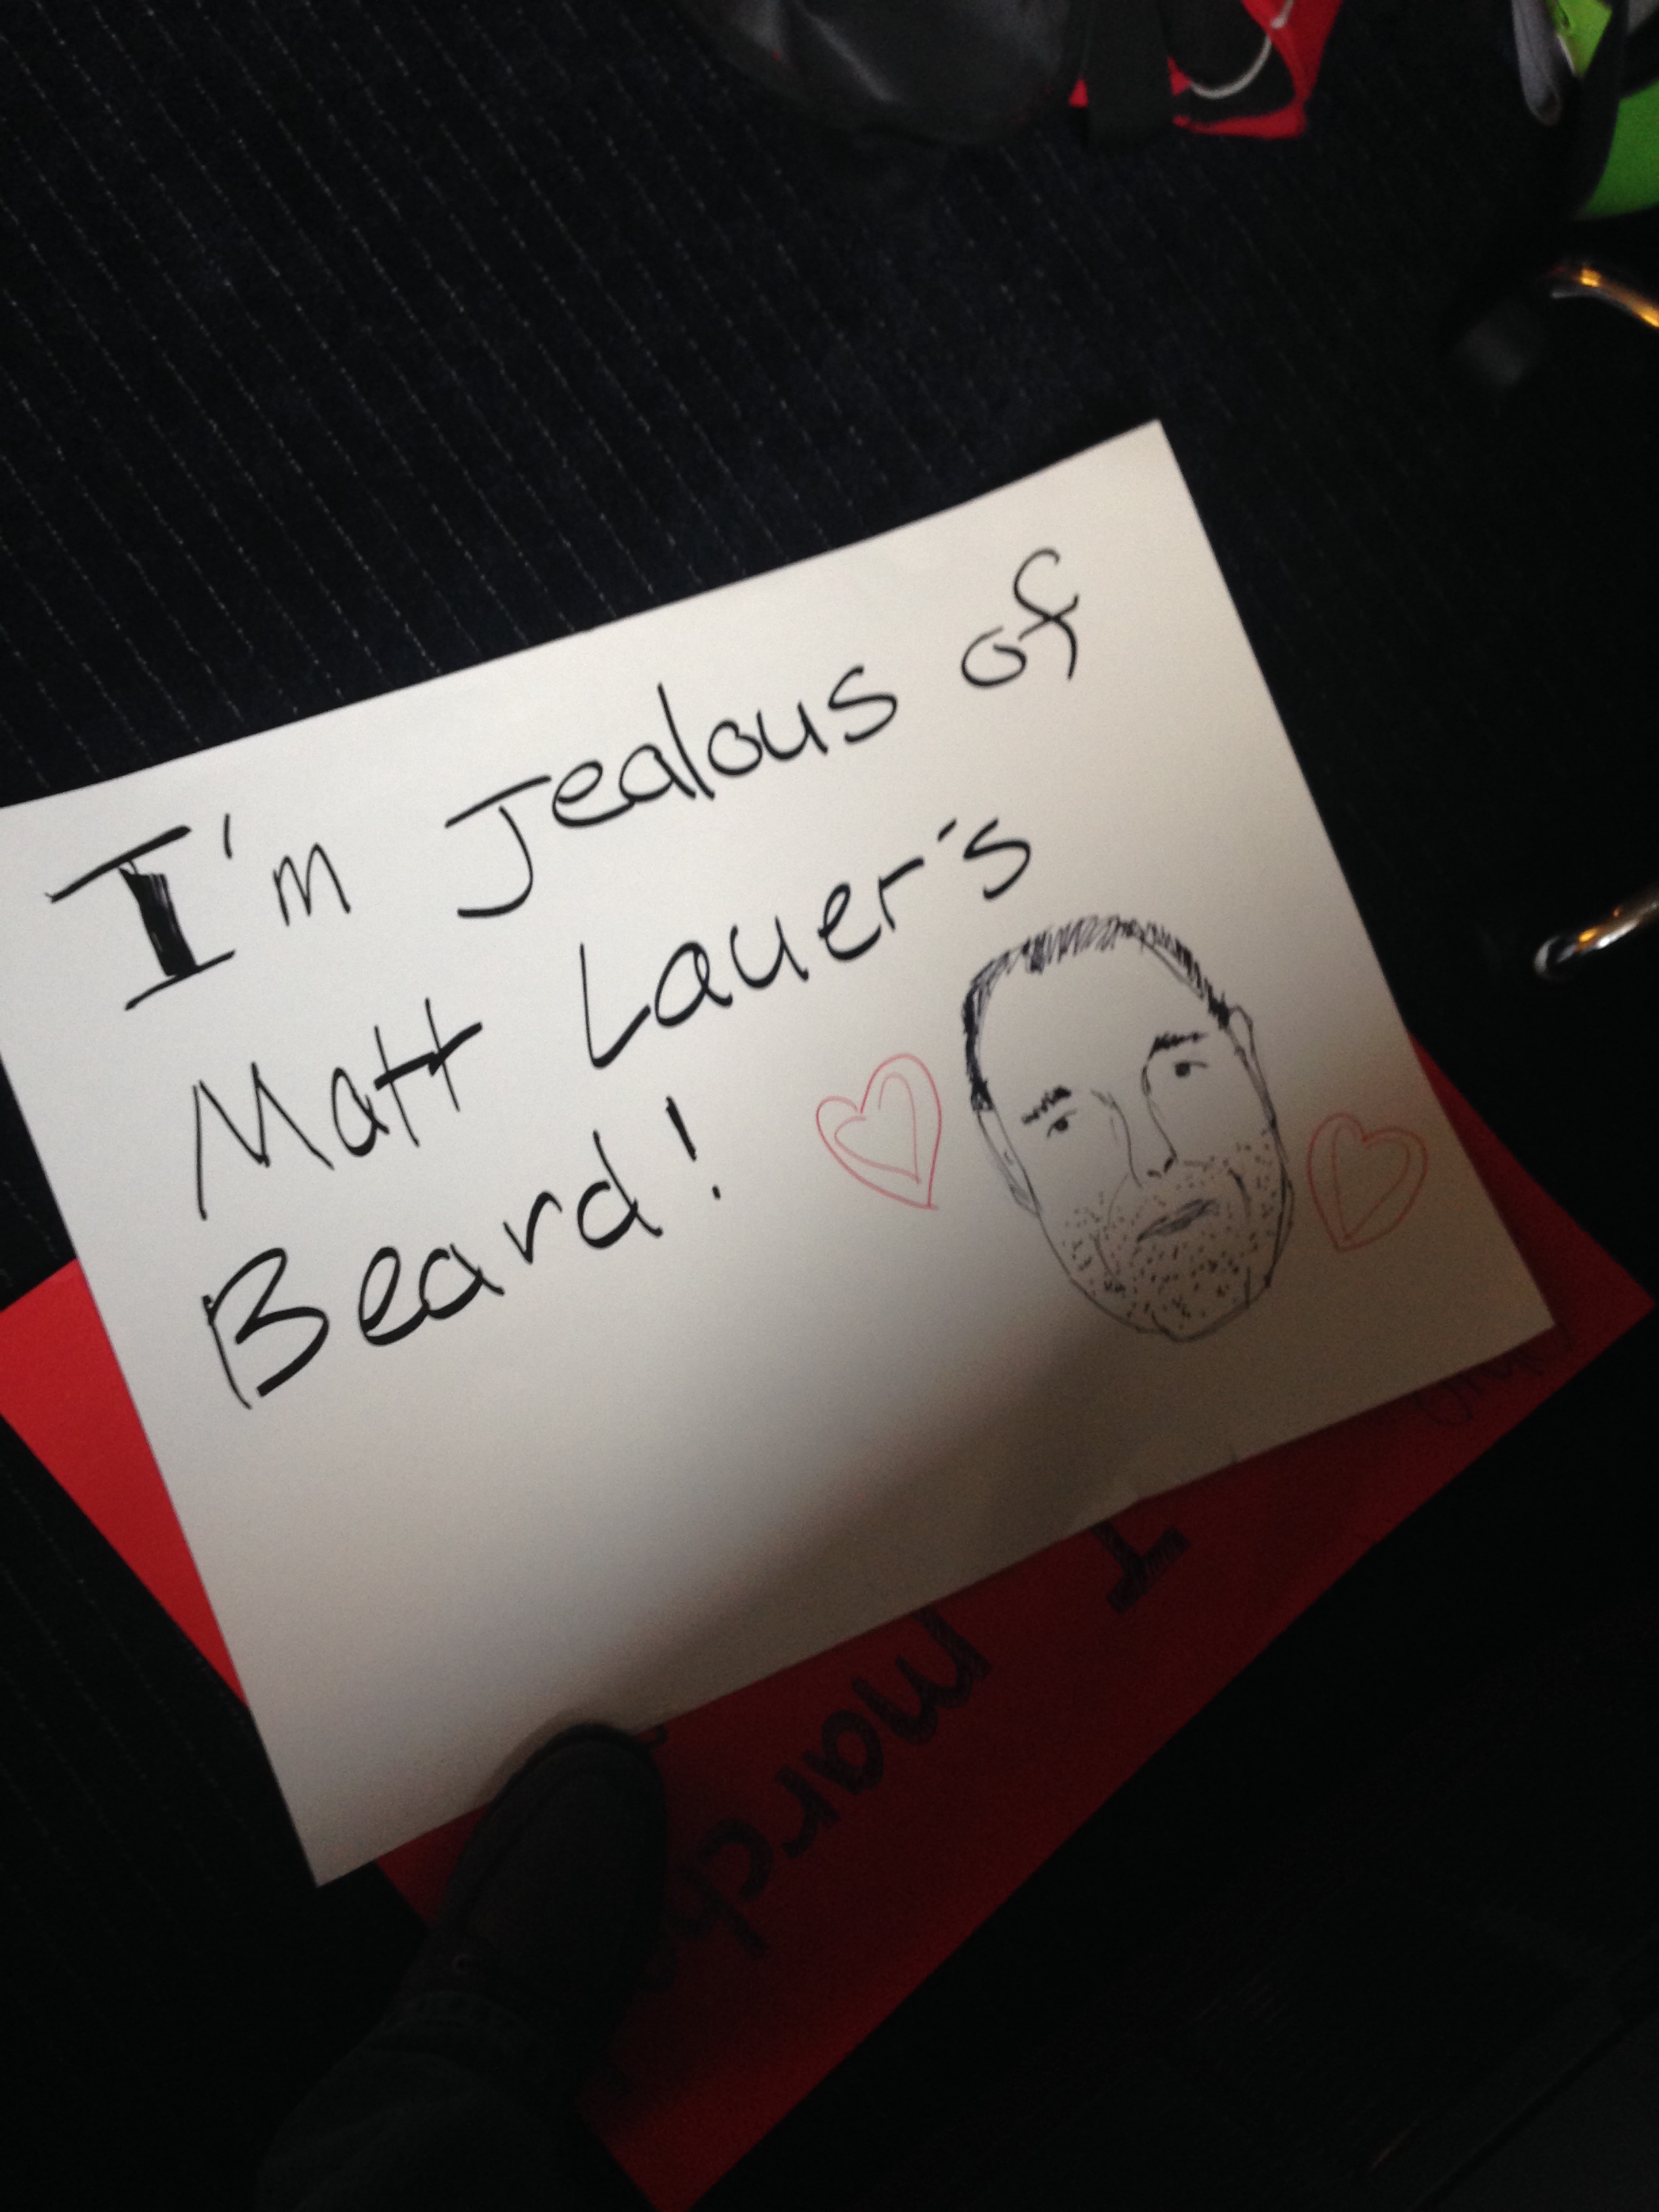 I'm Jealous of
Matt Lauer's
Beard!
I